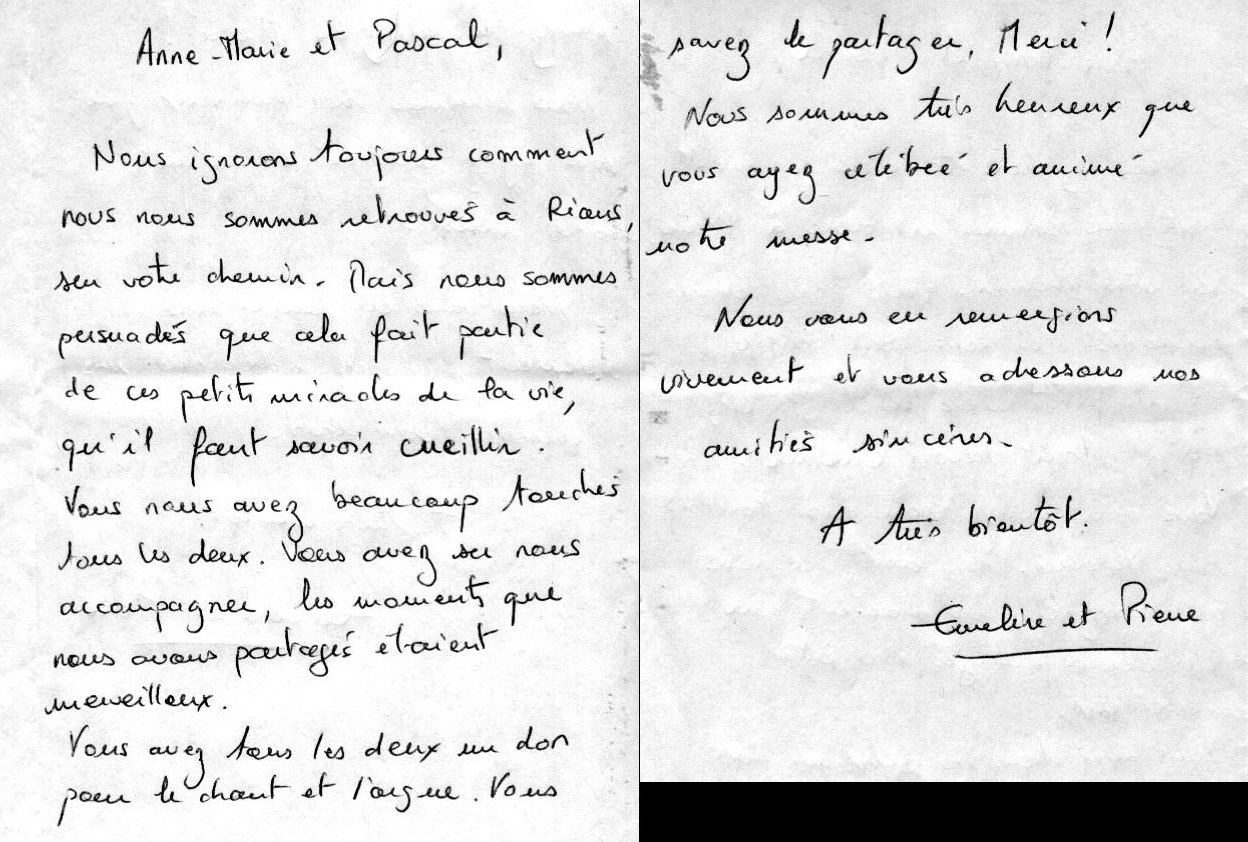 Anne-Marie et Pascal,
Nous ignorons toujours comment
nous nous sommes retrouvés à Rians,
sur votre chemin. Mais nous sommes
persuadés que cela fait partie
de ces petits miracles de la vie,
qu'il faut savoir cueillir.
Vous nous avez beaucoup touchés
tous les deux. Vous avez su nous
accompagner, les moments que
nous avons partagés étaient
merveilleux.
Vous avez tous les deux un don
pour le chant et l'orgue. Vous
savez le partager, Merci !
Nous sommes très heureux que
vous ayez célébré et animé
notre messe.
Nous vous en remergions
vivement et vous adressons nos
amitiés sincères.
A très bientôt.
Emeline et Pierre